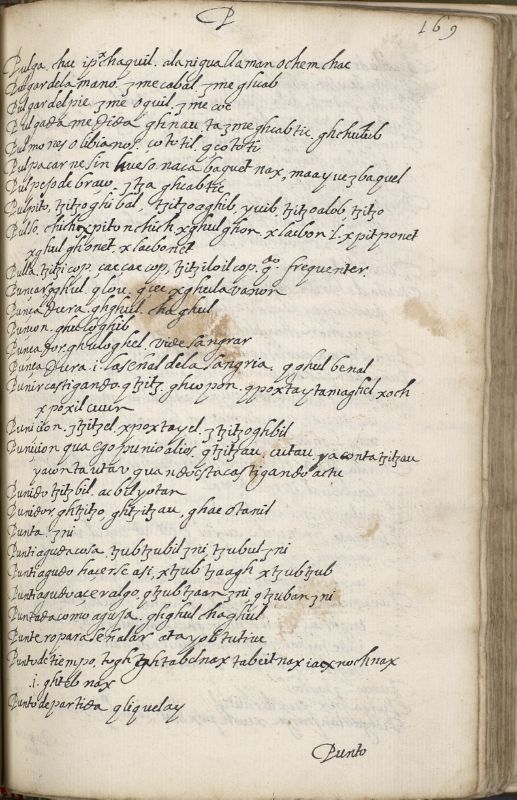 P
169
Pulga. chac ipx chaquil. alaniqua llaman ochem chac
Pulgar dela mano, zme cabal zme ghcab
Pulgar del pie, zme oquil. zme coc
Pulgada medida ghnau, ta zme ghcabtic. ghchutub
Pulmones o libianos. cototil. qcototi
Pulpa carne sin hueso naca baquet nax, maayuczbaquel
Pulpejo de braço, ghcabtic
Pulpito, tzitzoghibal, tzitzoaghib yuib, tzitzoalob, tzitzo
Pulso, chich xpiton chich xghulghon. xlacbon .l. xpitponet
xghulghonet xlacbonet
Pulla. tzitzicop. caccaccop, tzitziloilcop. frequenter
Punçar qghul qlou. xghulauanon
Punçadura. ghghul. chaghul
Punçon. ghuloghib
Punçador. ghuloghel. vide sangrar
Punçadura .i. la señal dela sangria. qghulbenal
Punir castigando. qtzitz. ghcopon. qpoxtaytamaghel xoch
xpoxil cuun
Puniçion. ztzitzel. xpoxtayel. ztzitzoghbil
Puniçion qua ego punio alios. qtzitzau, cutau yaconta tzitzau
yaconta utau quando esta castigando actu
Punido tzitzbil. acbilyotan
Punidor. ghtzitzo, ghtzitzau, ghac otanil
Punta. zni
Puntiaguda cosa. tzubtzubil zni, tzubul zni
Puntiagudo haçerse asi, xtzub tzaagh xtzubtzub
Puntiagudo açer algo, qtzubtzaan zni qtzuban zni
Puntada como aguja. ghghul chaghul
Puntero para señalar atayobtutiuc
Punto de tiempo, togh tabcitnax iaexnochnax
.i. ghtebnax
Punto de partida qliquelay
Punto